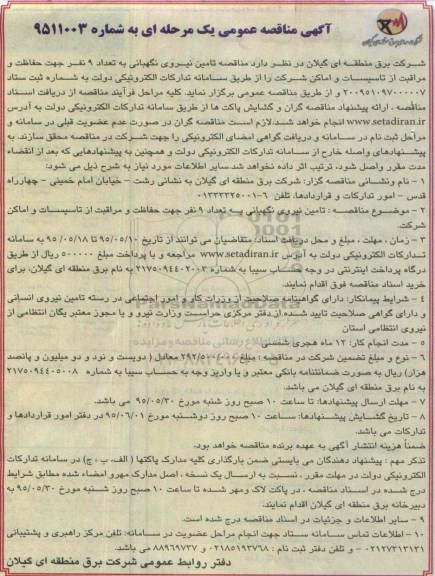 آگهی مناقصه عمومی یک مرحله ای به شماره ۹۵۱۱۰۰۳
شرکت برق منطقه ای گیلان در نظر دارد مناقصه تامین نیروی نگهبانی به تعداد ۹ نفر جهت حفاظت و
مراقبت از تاسیسات و اماکن شرکت را از طریق سامانه تدارکات الکترونیکی دولت به شماره ثبت ستاد
۲۰۰۹۵۱۰۹۷۰۰۰۰۰۷ و از طریق مناقصه عمومی برگزار نماید. کلیه مراحل فرآیند مناقصه از دریافت اسناد
مناقصه، ارائه پیشنهاد مناقصه گران و گشایش پاکت ها از طریق سامانه تدارکات الکترونیکی دولت به آدرس
www.setadiran.ir انجام خواهد شد. لازم است مناقصه گران در صورت عدم عضویت قبلی در سامانه و
مراحل ثبت نام در سامانه و دریافت گواهی امضای الکترونیکی را جهت شرکت در مناقصه محقق سازند. به
پیشنهادهای واصله خارج از سامانه تدارکات الکترونیکی دولت و همچنین به پیشنهادهایی که بعد از انقضاء
مدت مقرر واصل شود، ترتیب اثر داده نخواهد شد. سایر اطلاعات مورد نیاز به شرح ذیل می شود:
۱ - نام ونشانی مناقصه گزار: شرکت برق منطقه ای گیلان به نشانی رشت - خیابان امام خمینی - چهارراه
قدس - امور تدارکات و قراردادها. تلفن ۶-۰۱۳۳۳۳۲۵۰۰۱
۲ - موضوع مناقصه : تامین نیروی نگهبانی به تعداد ۹ نفر جهت حفاظت و مراقبت از تاسیسات و اماکن
شرکت.
۳ - زمان ، مهلت ، مبلغ و محل دریافت اسناد: متقاضیان می توانند از تاریخ ۹۵/۰۵/۱۰ تا ۹۵/۰۵/۱۸ به سامانه
تدارکات الکترونیکی دولت به آدرس www.setadiran.ir مراجعه و با پرداخت مبلغ ۵۰۰۰۰۰ ریال از طریق
درگاه پرداخت اینترنتی در وجه حساب سیبا به شماره ۲۱۷۵۰۹۴۴۰۲۰۰۳ به نام برق منطقه ای گیلان، برای
خرید اسناد مناقصه فوق اقدام نمایند.
۴ - شرایط پیمانکار: دارای گواهینامه صلاحیت از وزرات کار و امور اجتماعی در رسته تامین نیروی انسانی
و دارای گواهی صلاحیت تایید شده از دفتر مرکزی حراست وزارت نیرو و یا مجوز معتبر یگان انتظامی از
نیروی انتظامی استان
۵ - مدت انجام کار: ۱۲ ماه هجری شمسی
۶ - نوع و مبلغ تضمین شرکت در مناقصه: مبلغ ۲۹۲/۵۰۰/۰۰۰ معادل ( دویست و نود و دو میلیون و پانصد
هزار) ریال به صورت ضمانتنامه بانکی معتبر و یا واریز وجه به حساب سیبا به شماره ۲۱۷۵۰۹۴۴۰۵۰۰۸
به نام برق منطقه ای گیلان می باشد.
۷ - مهلت ارسال پیشنهادها: تا ساعت ۱۰ صبح روز شنبه مورخ ۹۵/۰۵/۳۰ می باشد.
۸ - تاریخ گشایش پیشنهادها: ساعت ۱۰ صبح روز دوشنبه مورخ ۹۵/۰۶/۰۱ در دفتر امور قراردادها و
تدارکات می باشد.
ضمناً هزینه انتشار آگهی به عهده برنده مناقصه خواهد بود.
تذکر مهم : پیشنهاد دهندگان می بایستی ضمن بارگذاری کلیه مدارک پاکتها ( الف، ب ، ج) در سامانه تدارکات
الکترونیکی دولت در مهلت مقرر ، نسبت به ارسال یک نسخه ، اصل مدارک مهرو امضاء شده مطابق شرایط
درج شده در اسناد مناقصه ، در پاکت لاک ومهر شده تا ساعت ۱۰ صبح روز شنبه مورخ ۹۵/۰۵/۳۰ به
دبیرخانه برق منطقه ای گیلان اقدام نمایند.
۹ - سایر اطلاعات و جزئیات در اسناد مناقصه درج شده است.
۱۰ - اطلاعات تماس سامانه ستاد جهت انجام مراحل عضویت در سامانه: تلفن مرکز راهبری و پشتیبانی
۰۲۱۲۷۳۱۳۱۳۱ - و تلفن دفتر ثبت نام : ۰۲۱۸۵۱۹۳۷۶۸ و ۸۸۹۶۹۷۳۷ می باشد.
دفتر روابط عمومی شرکت برق منطقه ای گیلان